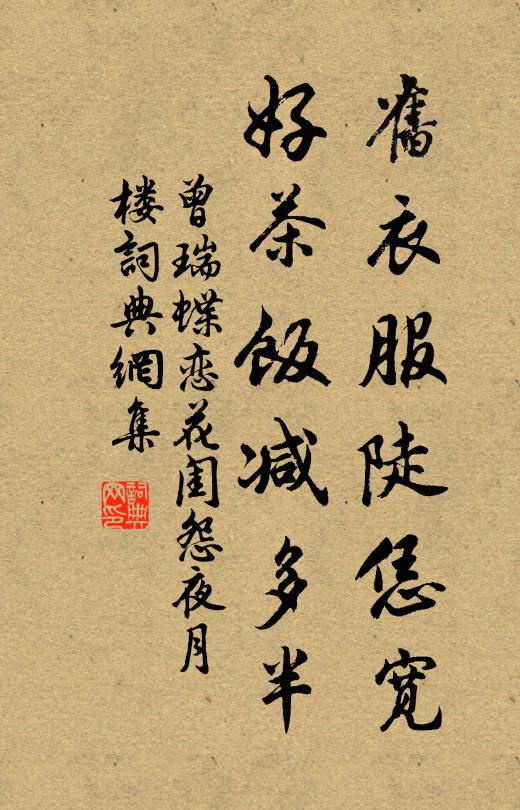 舊衣服陡恁寬
好茶飯减多半
曾瑞蝶恋花闺怨夜月
楼詞典網集
詞典网印